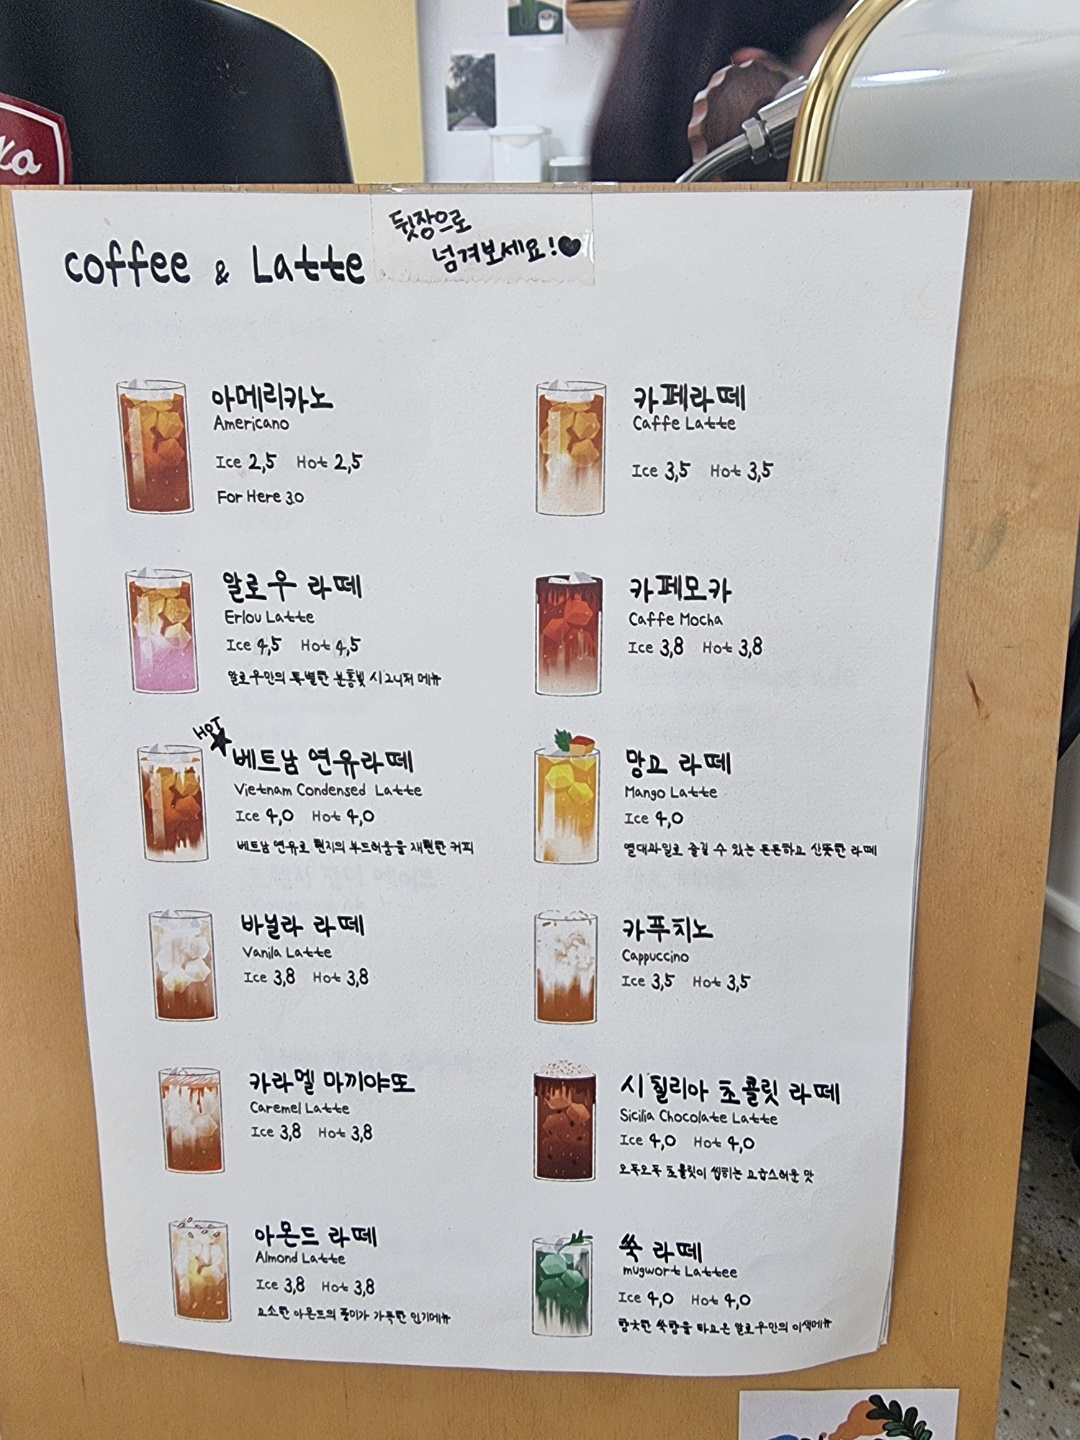 coffee & Latte
뒷장으로
넘겨보세요!♥
아메리카노
Americano
Ice 2,5 Hot 2,5
For Here 3.0
카페라떼
Caffe Latte
Ice 3,5 Hot 3,5
얼로우 라떼
Erlou Latte
Ice 4,5 Hot 4,5
얼로우만의 특별한 분홍빛 시그니처 메뉴
카페모카
Caffe Mocha
Ice 3,8 Hot 3,8
HOT
★
베트남 연유라떼
Vietnam Condensed Latte
Ice 4,0 Hot 4,0
베트남 연유로 현지의 부드러움을 재현한 커피
망고 라떼
Mango Latte
Ice 4,0
열대과일로 즐길 수 있는 든든하고 산뜻한 라떼
바닐라 라떼
Vanila Latte
Ice 3,8 Hot 3,8
카푸치노
Cappuccino
Ice 3,5 Hot 3,5
카라멜 마끼야또
Caremel Latte
Ice 3,8 Hot 3,8
시칠리아 초콜릿 라떼
Sicilia Chocolate Latte
Ice 4,0 Hot 4,0
오독오독 초콜릿이 씹히는 고급스러운 맛
아몬드 라떼
Almond Latte
Ice 3,8 Hot 3,8
고소한 아몬드의 풍미가 가득한 인기메뉴
쑥 라떼
mugwort Lattee
Ice 4,0 Hot 4,0
향긋한 쑥향을 담은 얼로우만의 이색메뉴